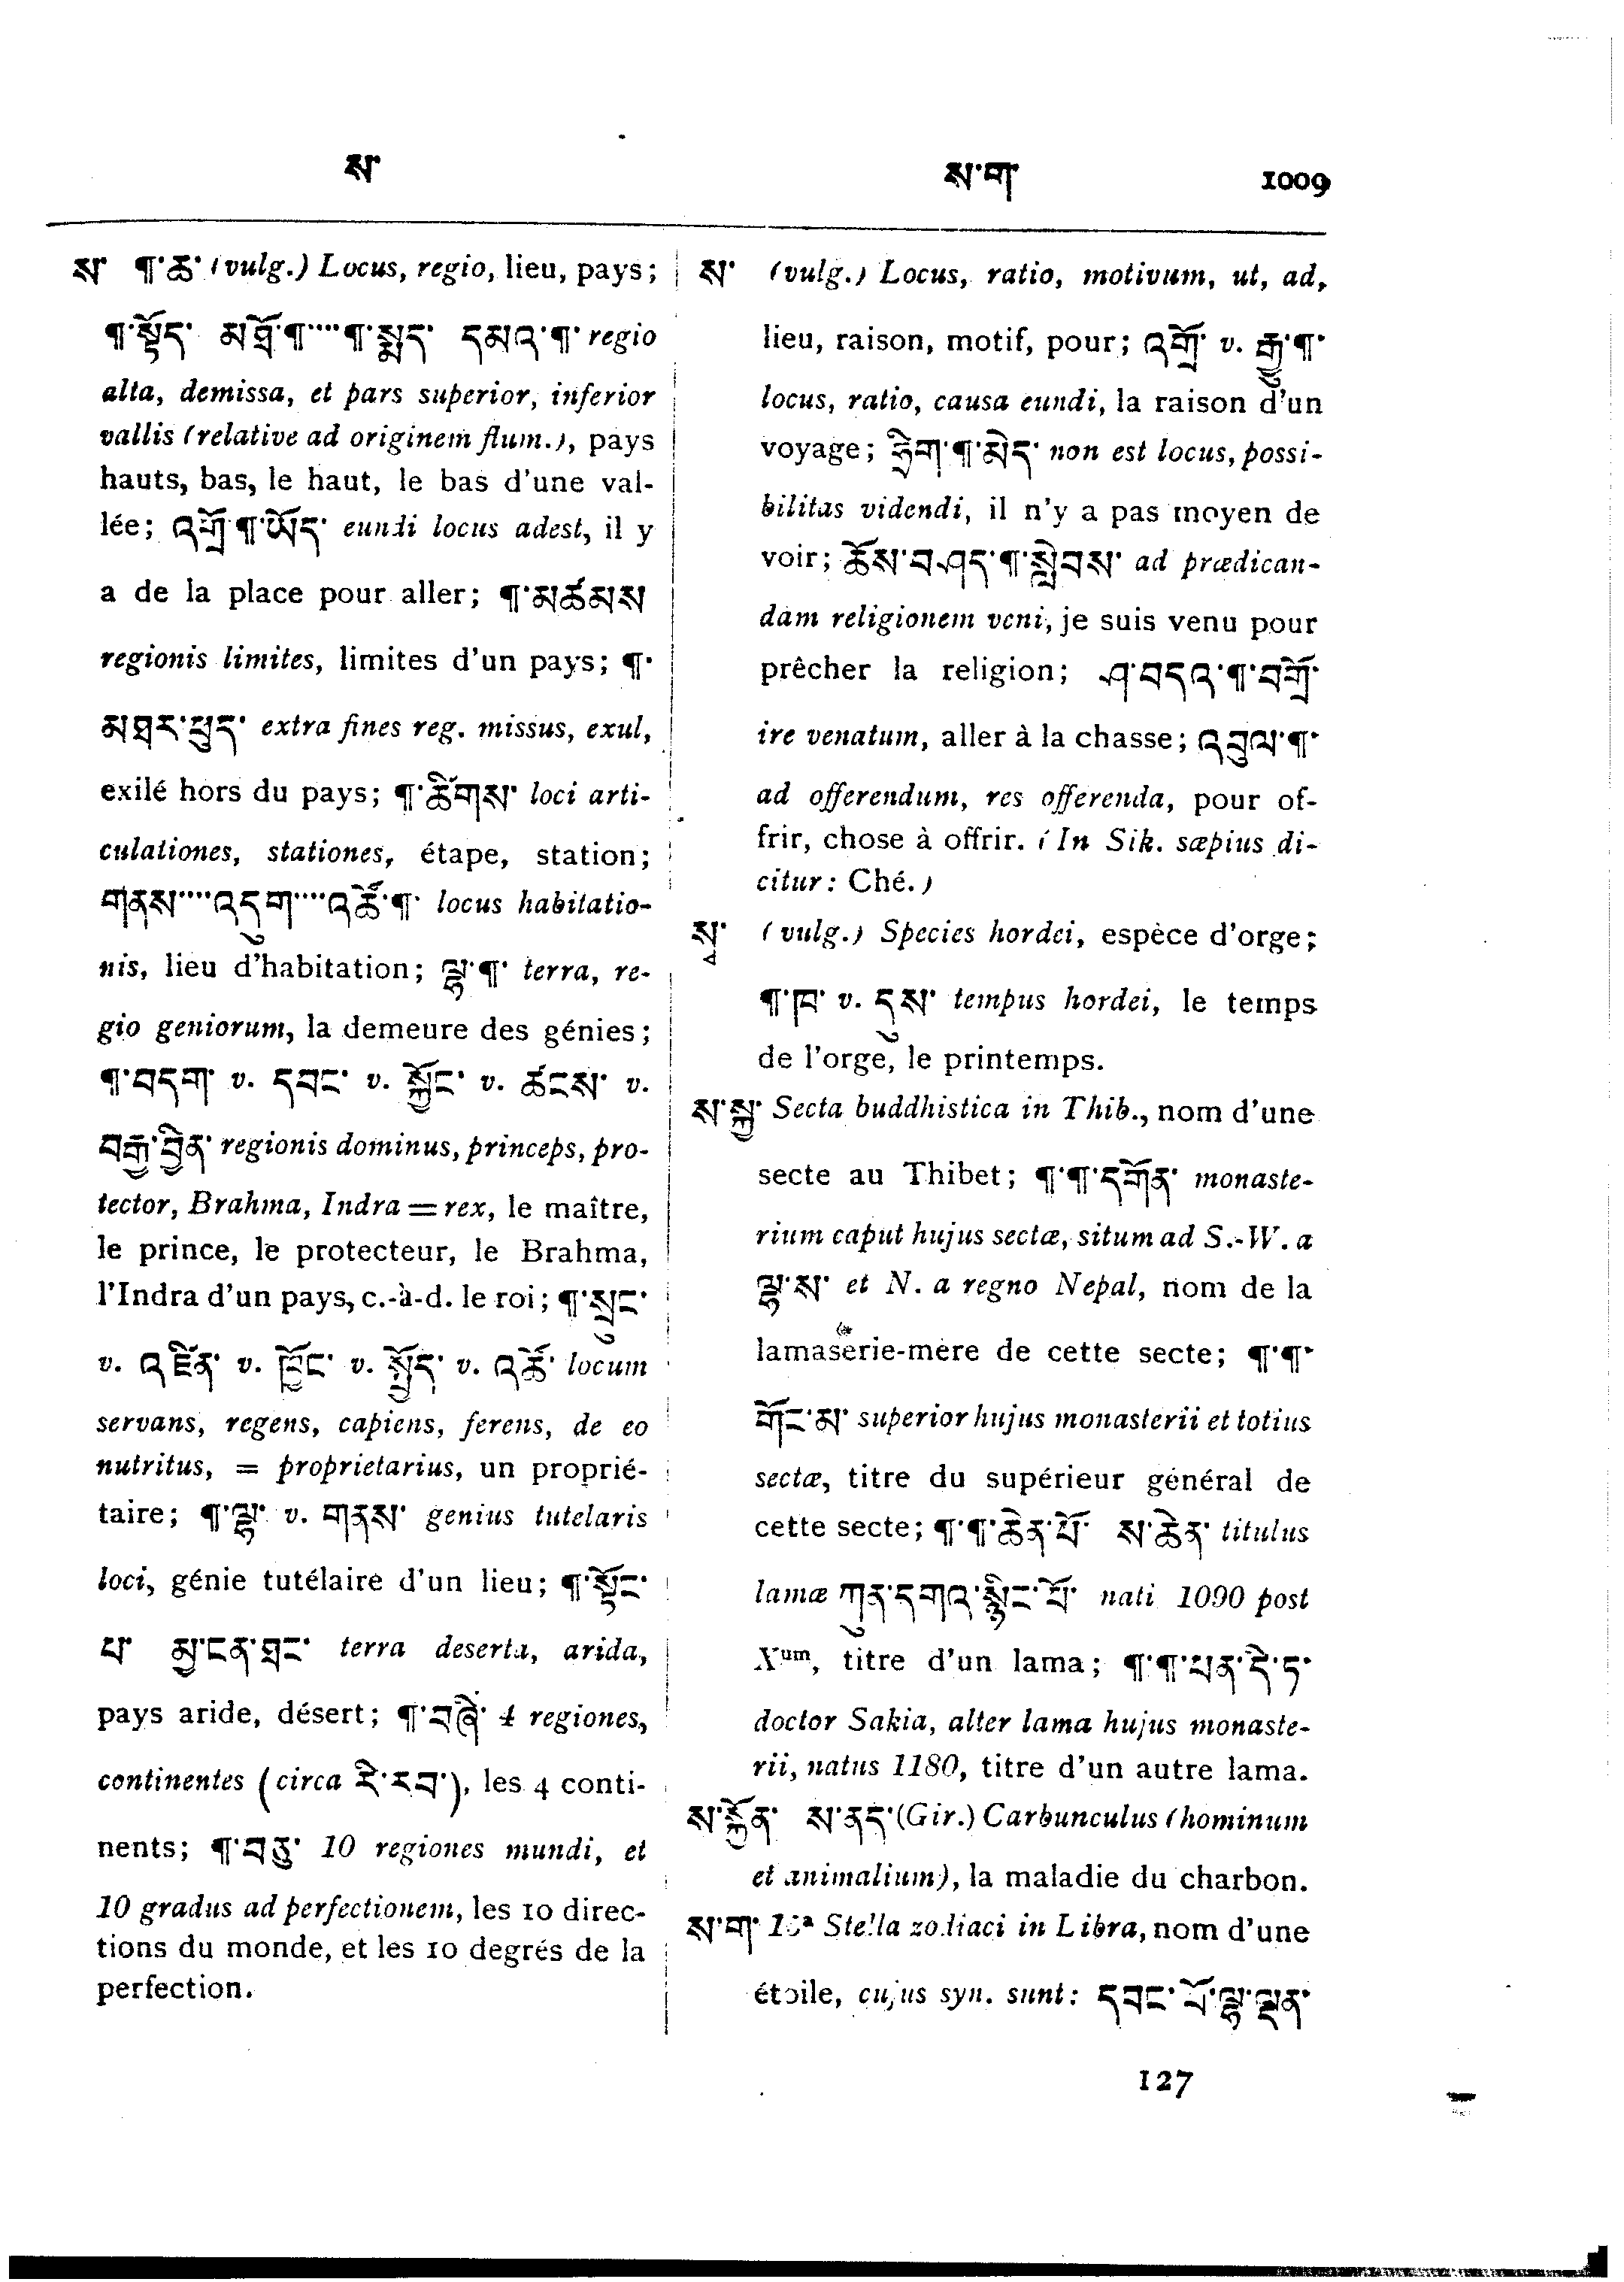 ས་
ས་ག་ 1009
ས་ ¶་ཆ་ (vulg.) Locus, regio, lieu, pays;
¶་སྟོད་ མཐོ་¶་····¶་སྨད་ དམའ་¶་ regio
alta, demissa, et pars superior, inferior
vallis (relative ad originem flum.), pays
hauts, bas, le haut, le bas d'une val-
lée; འགྲོ་¶་ཡོད་ eundi locus adest, il y
a de la place pour aller; ¶་མཚམས
regionis limites, limites d'un pays; ¶་
མཐར་ཕུད་ extra fines reg. missus, exul,
exilé hors du pays; ¶་ཚིགས་ loci arti-
culationes, stationes, étape, station;
གནས་····འདུག་····འཚོ་¶་ locus habitatio-
nis, lieu d'habitation; ལྷ་¶་ terra, re-
gio geniorum, la demeure des génies;
¶་བདག་ v. དབང་ v. སྐྱོང་ v. ཚངས་ v.
བརྒྱ་བྱིན་ regionis dominus, princeps, pro-
tector, Brahma, Indra = rex, le maître,
le prince, le protecteur, le Brahma,
l'Indra d'un pays, c.-à-d. le roi; ¶་སྲུང་
v. འཛིན་ v. ཁྱོང་ v. སྤྱོད་ v. འཚོ་ locum
servans, regens, capiens, ferens, de eo
nutritus, = proprietarius, un proprié-
taire; ¶་ལྷ་ v. གནས་ genius tutelaris
loci, génie tutélaire d'un lieu; ¶་སྟོང་
པ་ མྱ་ངན་ཐང་ terra deserta, arida,
pays aride, désert; ¶་བཞི་ 4 regiones,
continentes (circa རི་རབ་), les 4 conti-
nents; ¶་བཅུ་ 10 regiones mundi, et
10 gradus ad perfectionem, les 10 direc-
tions du monde, et les 10 degrés de la
perfection.
ས་ (vulg.) Locus, ratio, motivum, ut, ad,
lieu, raison, motif, pour; འགྲོ་ v. རྒྱུ་¶་
locus, ratio, causa eundi, la raison d'un
voyage; ¶་མེད་ non est locus, possi-
bilitas videndi, il n'y a pas moyen de
voir; ཆོས་བཤད་¶་སླེབས་ ad prædican-
dam religionem veni, je suis venu pour
prêcher la religion; ཤ་བདའ་¶་བགྲོ་
ire venatum, aller à la chasse; འབུལ་¶་
ad offerendum, res offerenda, pour of-
frir, chose à offrir. (In Sik. sæpius di-
citur: Ché.)
སྭ་ (vulg.) Species hordei, espèce d'orge;
¶་ཁ་ v. དུས་ tempus hordei, le temps
de l'orge, le printemps.
ས་སྐྱ་ Secta buddhistica in Thib., nom d'une
secte au Thibet; ¶་¶་དགོན་ monaste-
rium caput hujus sectæ, situm ad S.-W. a
ལྷ་ས་ et N. a regno Nepal, nom de la
lamaserie-mère de cette secte; ¶་¶་
གོང་མ་ superior hujus monasterii et totius
sectæ, titre du supérieur général de
cette secte; ¶་¶་ཆེན་པོ་ ས་ཆེན་ titulus
lamæ ཀུན་དགའ་སྙིང་པོ་ nati 1090 post
Xum, titre d'un lama; ¶་¶་པན་དེ་ཏ་
doctor Sakia, alter lama hujus monaste-
rii, natus 1180, titre d'un autre lama.
ས་སྐྱོན་ ས་ནད་ (Gir.) Carbunculus (hominum
et animalium), la maladie du charbon.
ས་ག་ Stella zodiaci in Libra, nom d'une
étoile, cujus syn. sunt: དབང་པོ་ལྷ་ལྡན་
127